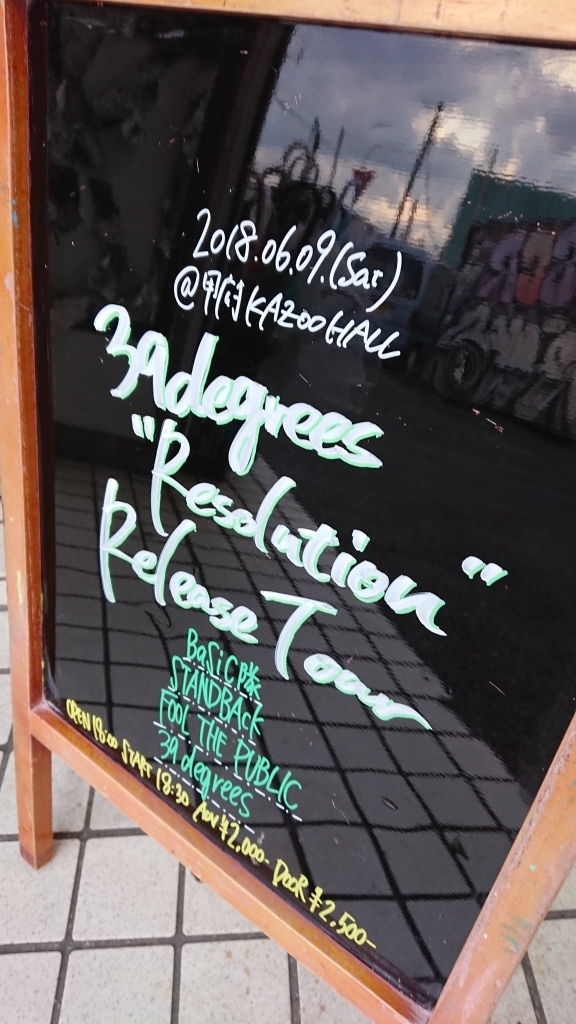 2018.06.09.(Sat)
@甲府KAZOOHALL
39degrees
"Resolution"
Release Tour
BaSiC隊
STANDBAcK
FOOL THE PUBLIC
39degrees
OPEN 18:00 START 18:30 ADV ¥2,000- DOOR ¥2,500-